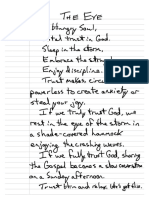 THE EYE
Hungry Soul,
total trust in God.
Sleep in the storm.
Embrace the
Enjoy discipline.
Trust makes
powerless to create anxiety or
steal your joy.
If we truly trust God, we
rest in the eye of the storm in
a shade-covered hammock
enjoying the crashing waves.
If we fully trust God, sharing
the Gospel becomes a
on a Sunday afternoon.
Trust him and relax.